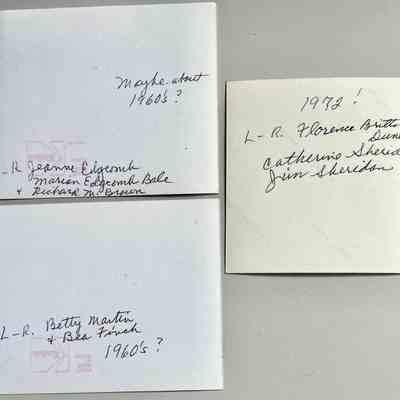 Maybe about
1960's?
R Jeanne Edgcomb
Marian Edgcomb Bale
& Richard M. Brown
L-R. Betty Martin
& Bea Finch
1960's?
1972!
L-R. Florence Britto
Dun
Catherine Sherid
Jim Sheridan